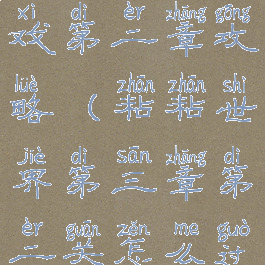 xì dì èr zhāng gōng
戏第二章攻
lüè zhān zhān shì
略（粘粘世
jiè dì sān zhāng dì
界第三章第
èr guān zěn me guò
二关怎么过